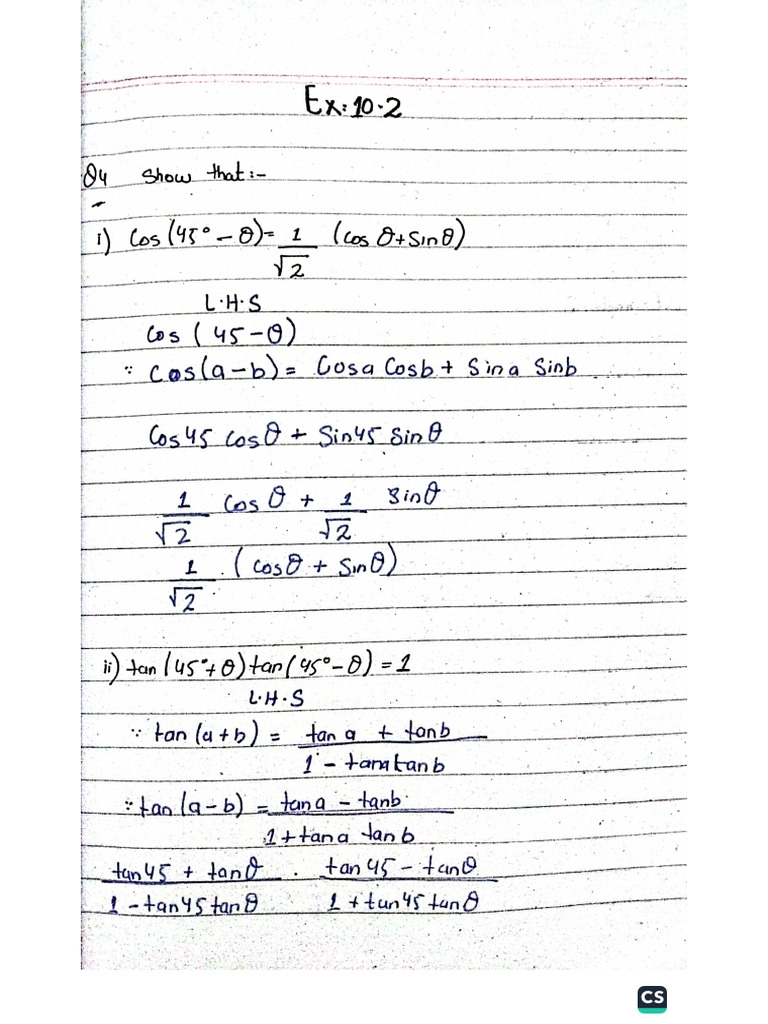 Ex: 10.2
Q4 Show that:-
i) Cos(45° - θ) = 1/√2 (cos θ + Sin θ)
L.H.S
Cos ( 45 - θ)
∵ Cos(a - b) = Cosa Cosb + Sin a Sinb
Cos45 cosθ + Sin45 Sinθ
1/√2 cos θ + 1/√2 Sinθ
1/√2 . (cosθ + Sinθ)
ii) tan(45° + θ) tan(45° - θ) = 1
L.H.S
∵ tan (a + b) = tan a + tanb / 1 - tana tanb
∵ tan (a - b) = tan a - tanb / 1 + tan a tan b
tan45 + tanθ / 1 - tan45 tanθ . tan45 - tanθ / 1 + tan45 tanθ
CS